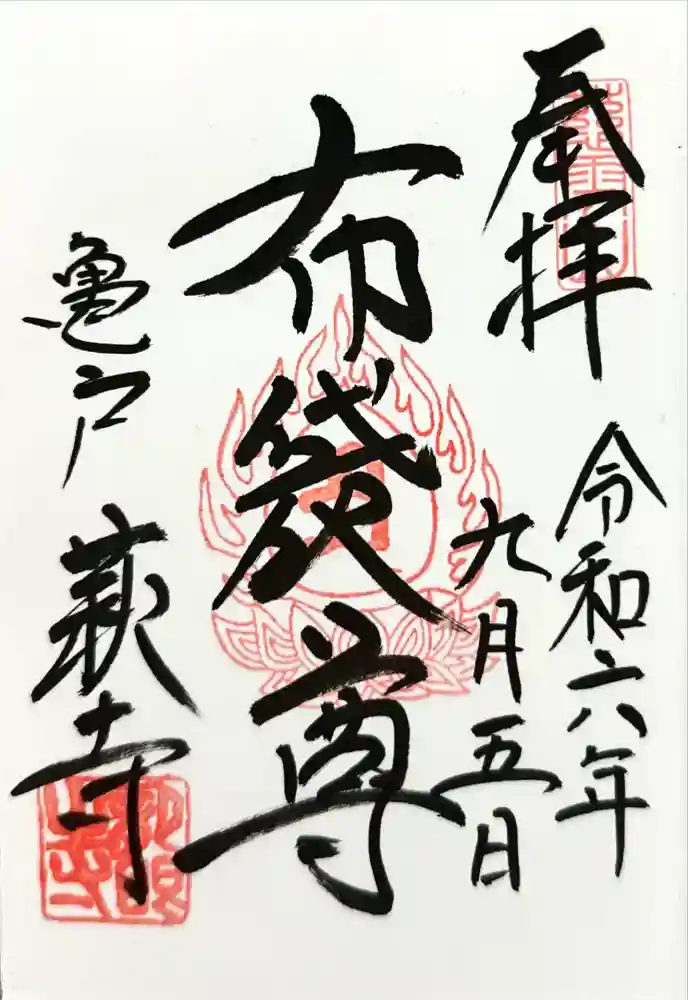 奉拝
令和六年
九月五日
布袋尊
亀戸
萩寺